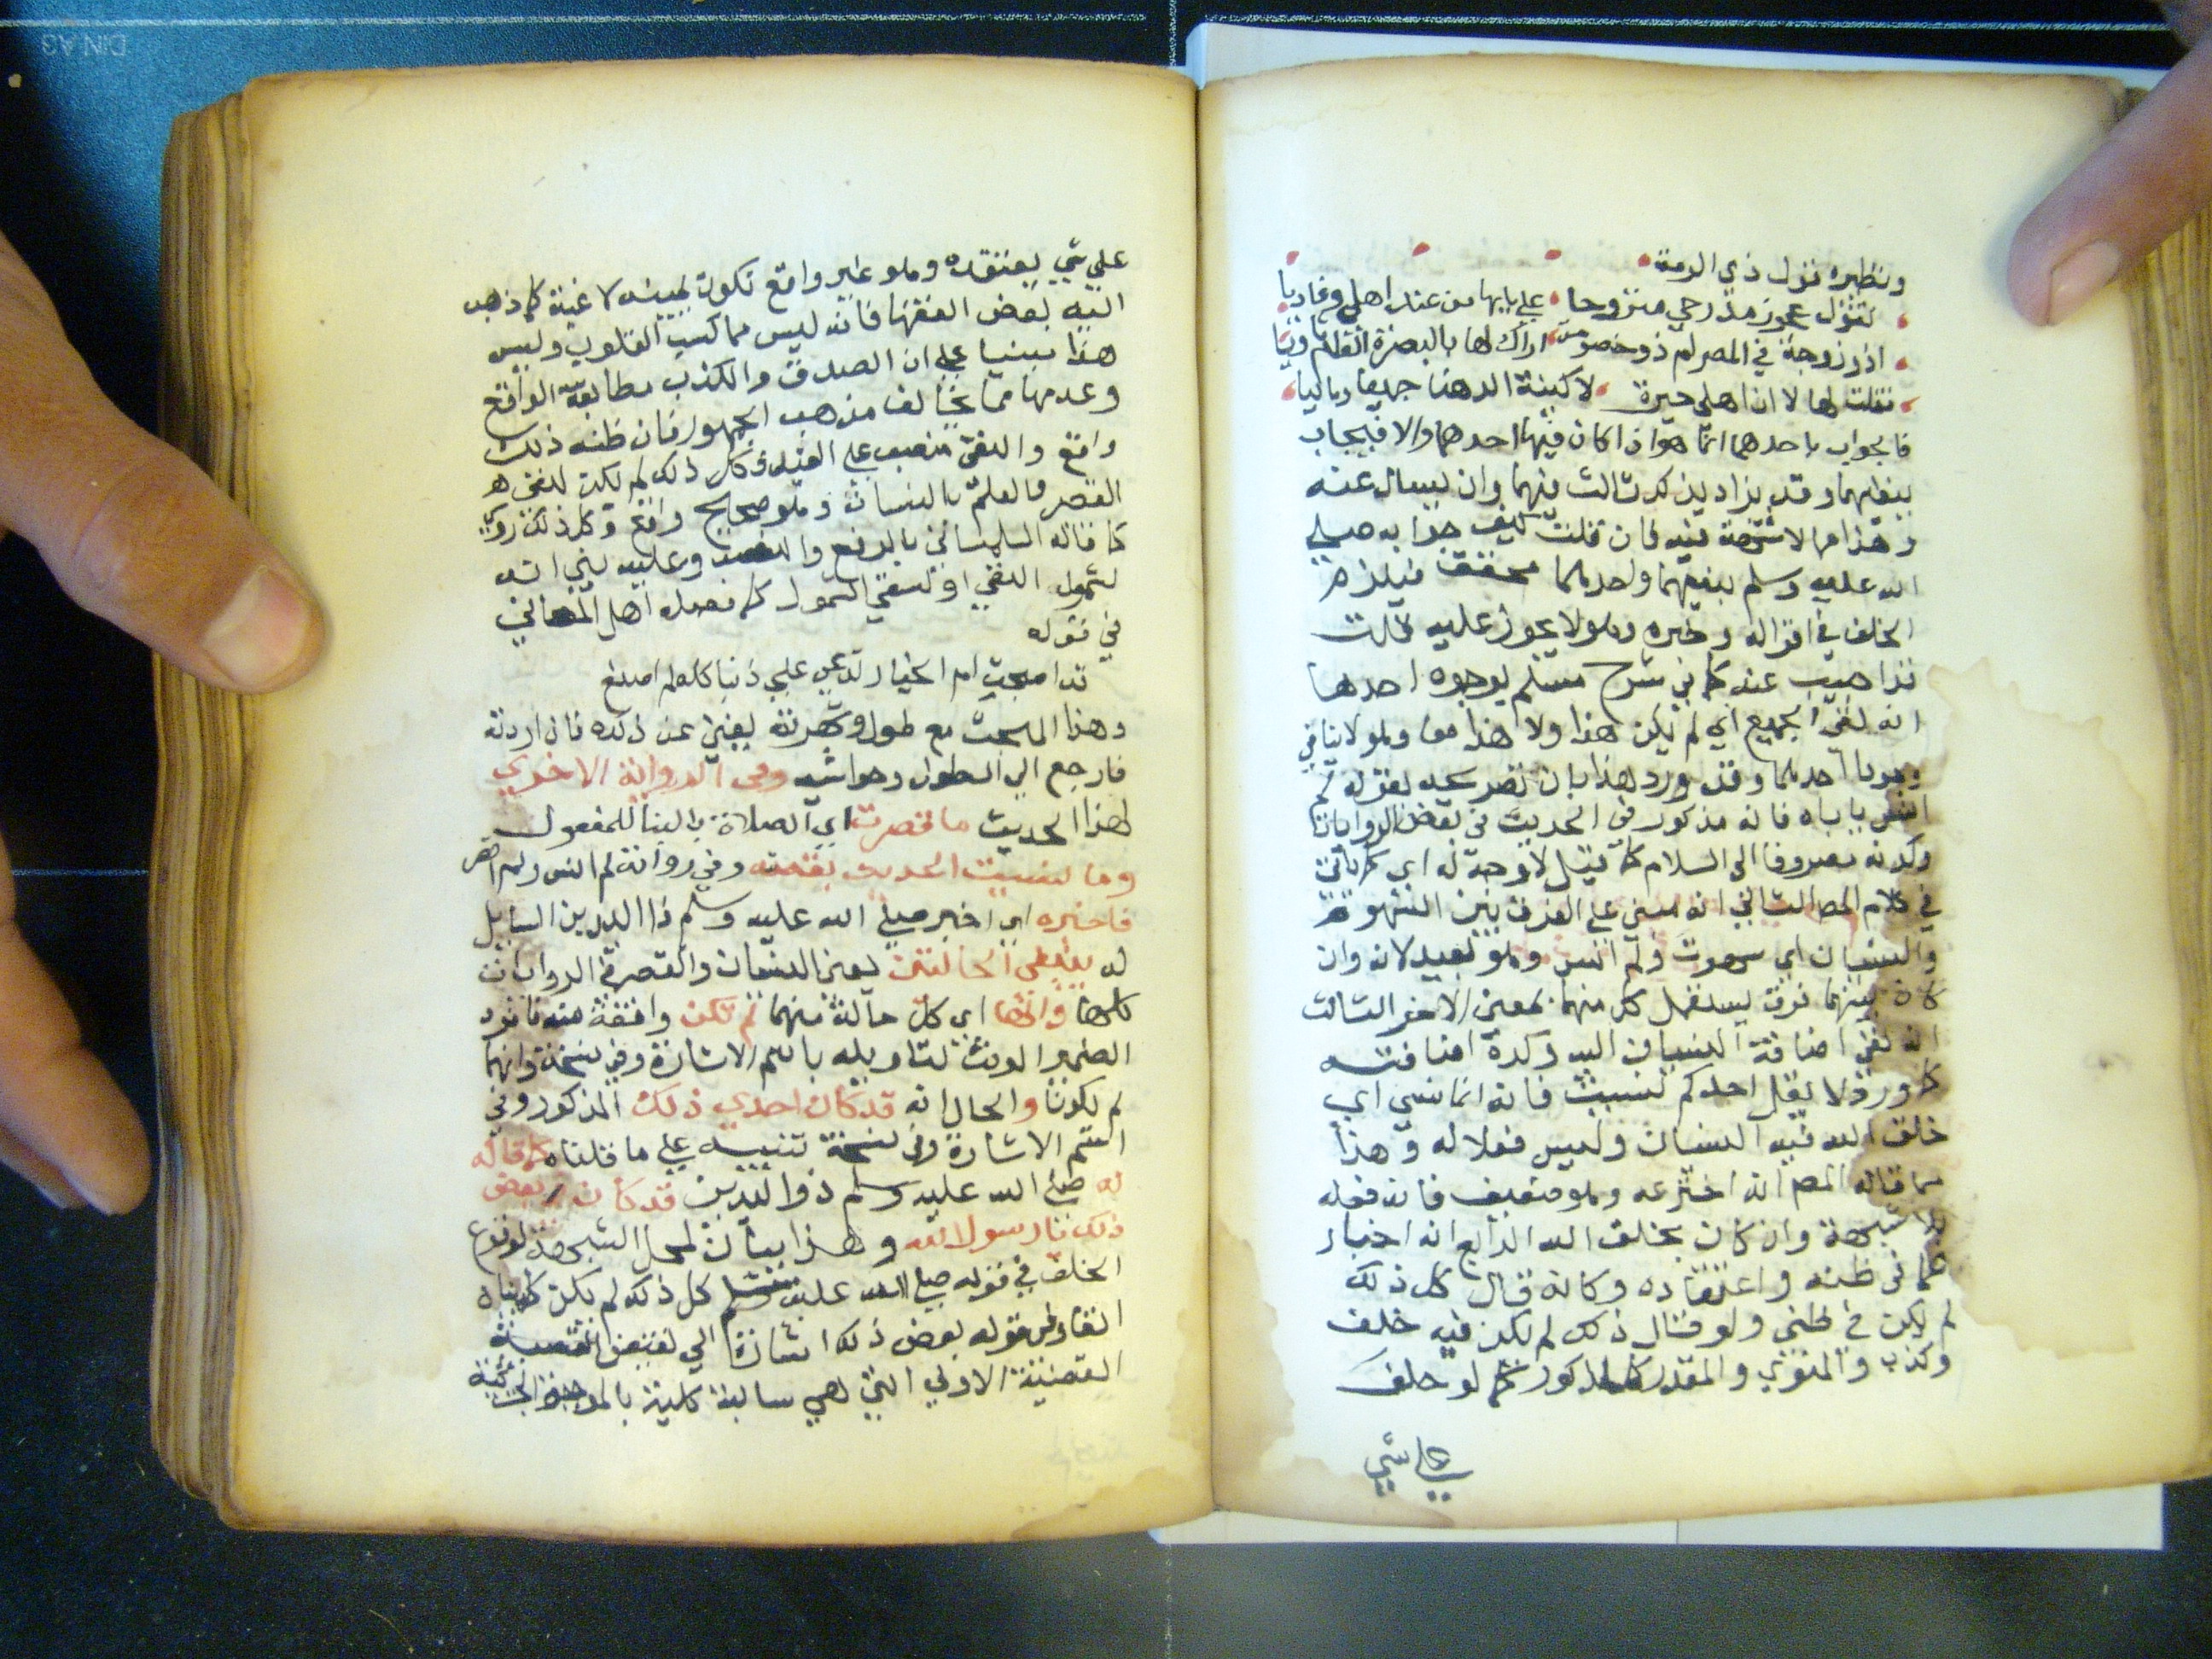 ونظيره قول ذي الرمة
تقول عجوز مدرجي متروحا على بابها من عند اهلي وغاديا
اذو زوجة في المصر ام ذو خصومة اراك لها بالبصرة العام ثاويا
فقلت لها لا ان اهلي جيرة لاكثبة الدهنا جميعا وماليا
فالجواب باحدهما انما هو اذا كان فيها احدهما والا فيجاب
بنفيهما وقد يزاد بذكر ثالث فيهما وان لم يسال عنه
وهذا مما لا شبهة فيه فان قلت كيف جوابه صلى
الله عليه وسلم بنفيهما واحدهما محقق فيلزم
الخلف في اقواله وخبره وهو لا يجوز عليه قلت
قد اجيب عنه كما في شرح مسلم بوجوه احدها
انه لنفي الجميع اي لم يكن هذا ولا هذا معا وهو لا ينافي
وجود احدهما وقد ورد هذا بان تصريحه بقوله لم
انس ياباه فانه مذكور في الحديث في بعض الروايات
وكونه مصروفا الى السلام كما قيل لا وجه له اي كما ياتي
في كلام المص الثاني انه مبني على الفرق بين السهو
والنسيان اي سهوت ولم انس وهو بعيد لانه وان
كان بينهما فرق يستعمل كل منهما بمعنى الاخر الثالث
انه نفي اضافة النسيان اليه وكره اضافته
كما ورد لا يقل احدكم نسيت فانه انما نسي اي
خلق الله فيه النسيان وليس فعلا له وهذا
مما قاله المص انه اخترعه وهو ضعيف فانه فعله
بلا شبهة وان كان بخلق الله الرابع انه اخبار
عما في ظنه واعتقاده وكانه قال كل ذلك
لم يكن في ظني ولو قال ذلك لم يكن فيه خلف
وكذب والمنوي والمقدر كالمذكور كما لو حلف
على شي
على شي يعتقده وهو غير واقع تكون يمينه لاغية كما ذهب
اليه بعض الفقها فانه ليس مما كسب القلوب وليس
هذا مبنيا على ان الصدق والكذب مطابقة الواقع
وعدمها مما يخالف مذهب الجمهور فان ظنه ذلك
واقع والنفي منصب على القيد وكل ذلك لم يكن لنفي
القصر والعلم بالنسيان وهو صحيح واقع وكل ذلك روي
كما قاله التلمساني بالرفع والنصب وعليه بني انه
لشمول النفي او لنفي الشمول كما فصله اهل المعاني
في قوله
قد اصبحت ام الخيار تدعي علي ذنبا كله لم اصنع
وهذا المبحث مع طوله وشهرته يغني عن ذكره فان اردته
فارجع الى المطول وحواشيه وفى الرواية الاخرى
لهذا الحديث ما قصرت اي الصلاة بالبنا للمفعول
وما نسيت الحديث بقصته وفي رواية لم انس ولم اقصر
فاخبره اي اخبر صلى الله عليه وسلم ذا اليدين السايل
له بنفي الحالتين يعني النسيان والقصر في الروايات
كلها وانها اي كل حالة منهما لم تكن واقعة منه فافرد
الضمير المونث لتاويله باسم الاشارة وفي نسخة وانهما
لم يكونا والحال انه قد كان احدى ذلك المذكور وفي
اسم الاشارة وفي نسخة تنبيه على ما قلناه كما قاله
له صلى الله عليه وسلم ذو اليدين قد كان بعض
ذلك يا رسول الله وهذا بيان لمحل الشبهة لوقوع
الخلف في قوله صلى الله عليه وسلم كل ذلك لم يكن كما بيناه
انفا وفي قوله بعض ذلك اشارة الى نقيض القضية
القضية الاولى التي هي سالبة كلية بالموجبة الجزئية